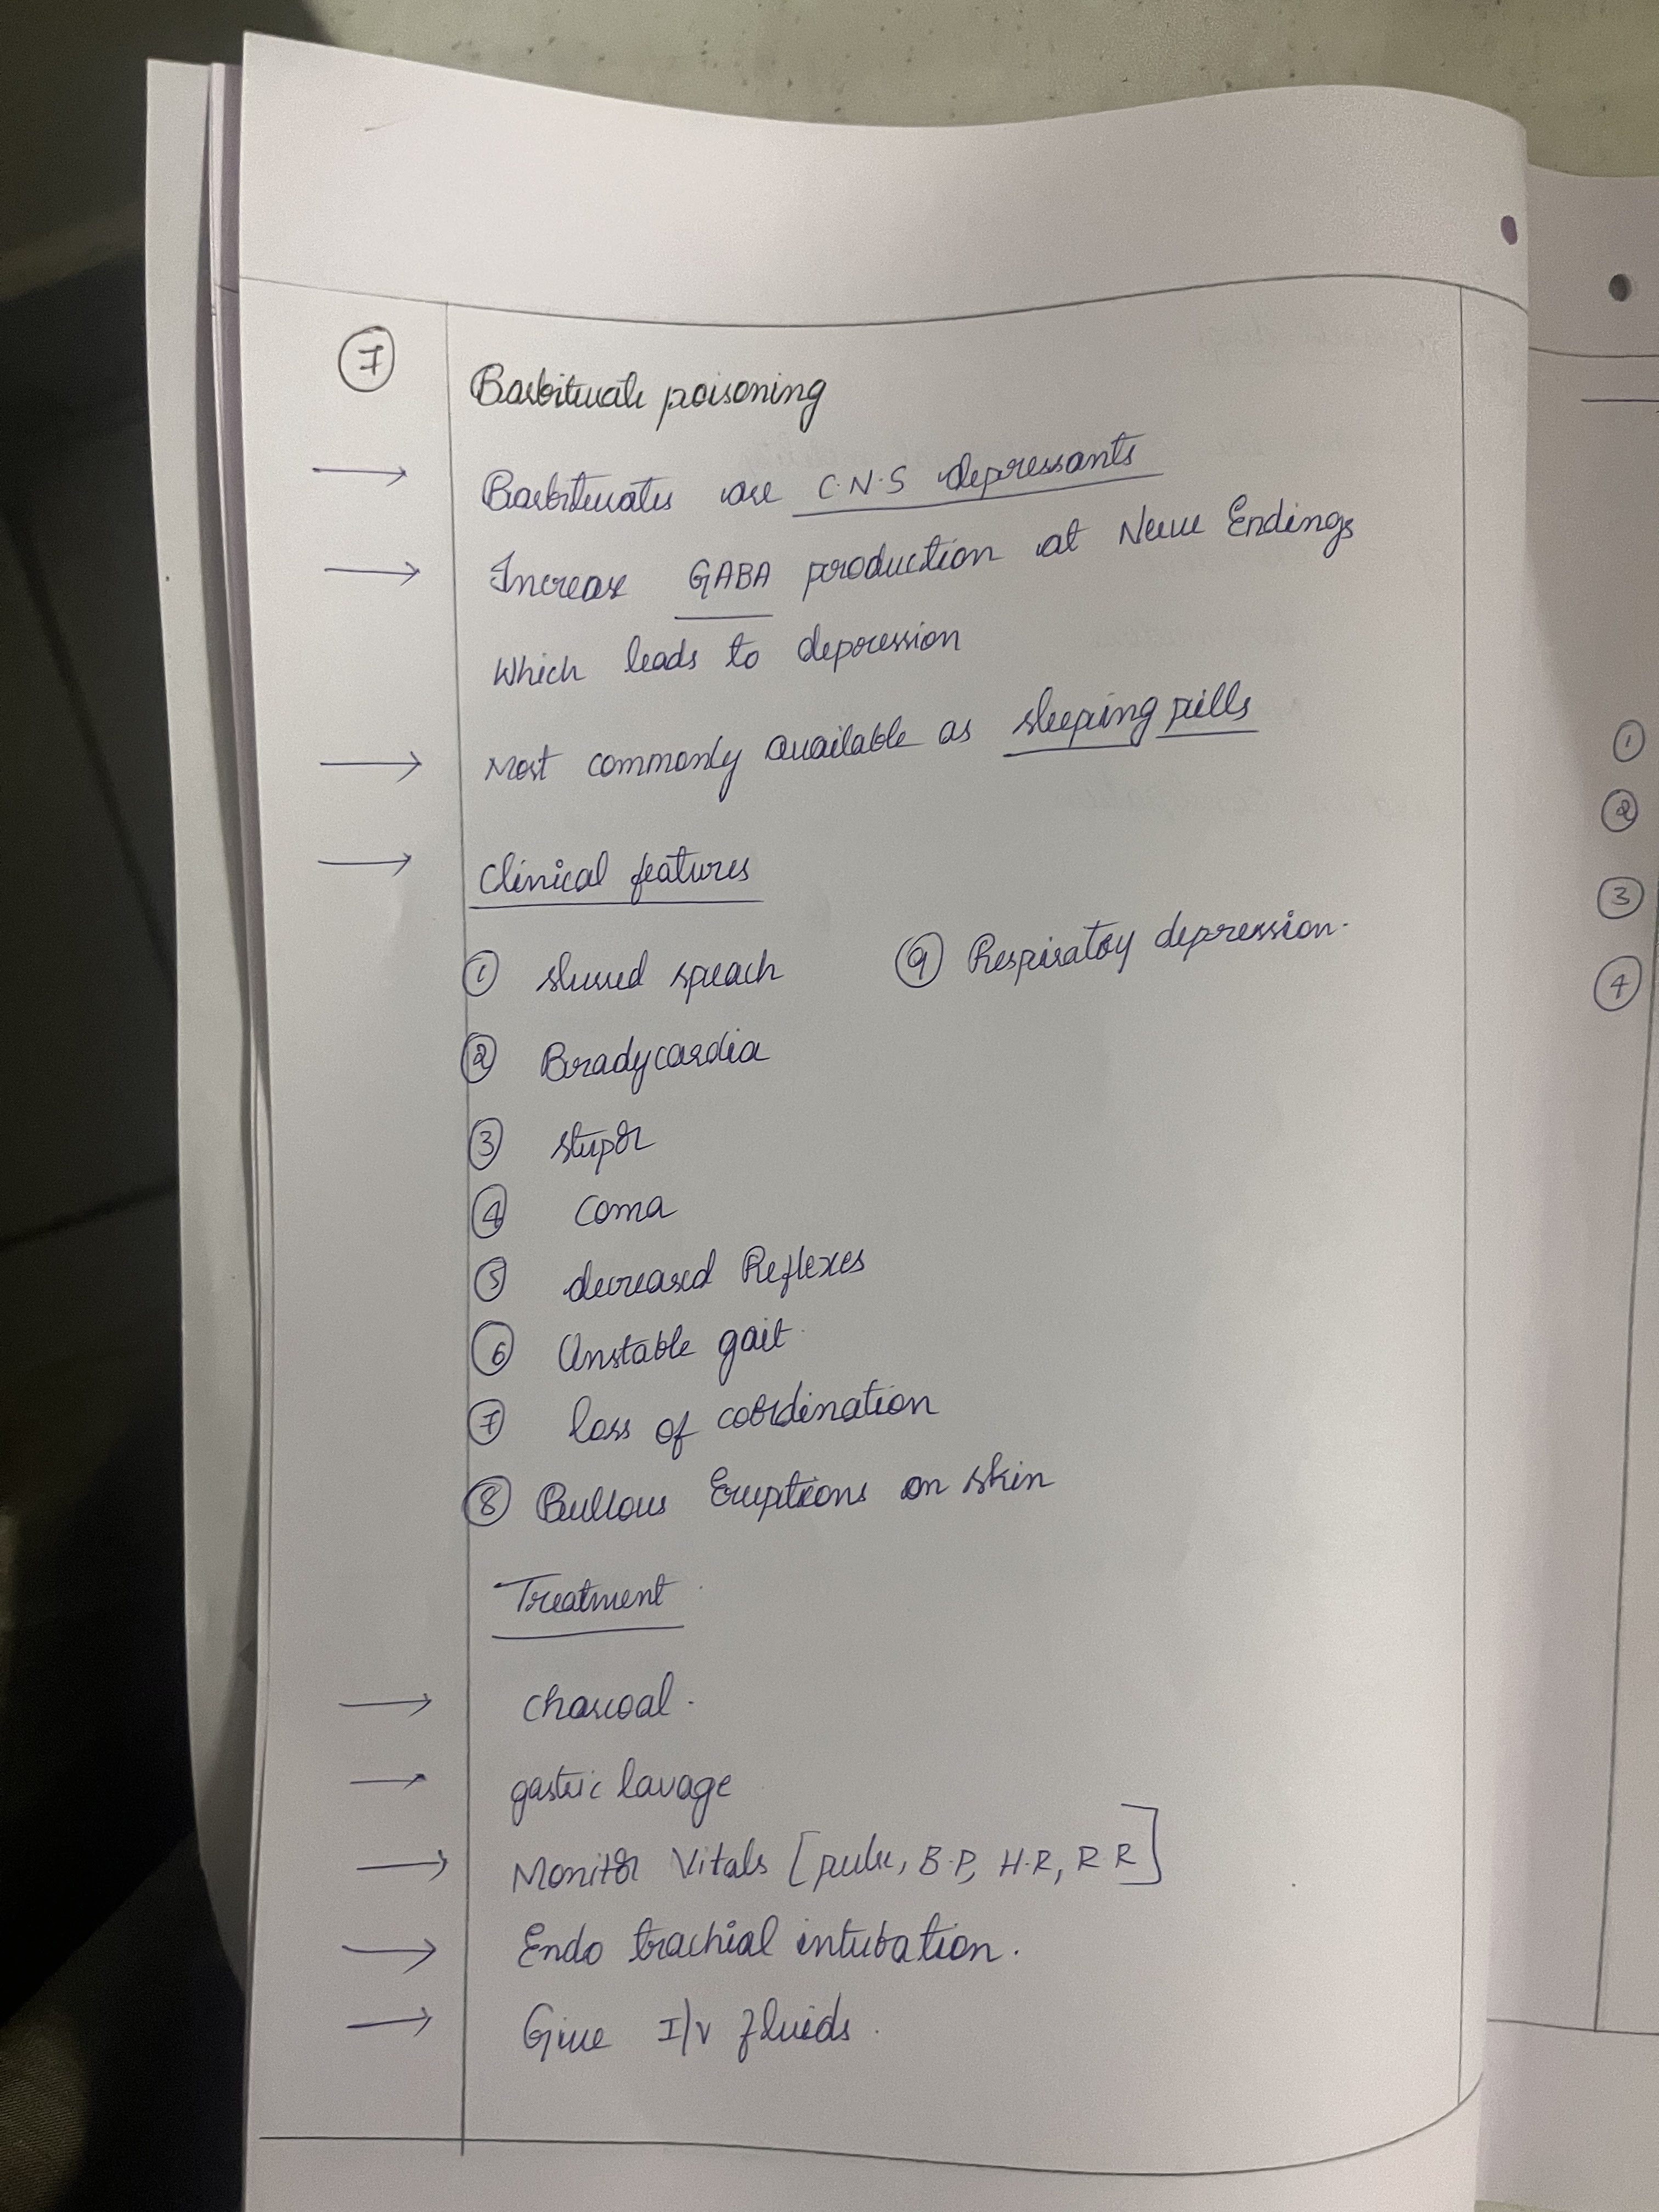 7
Barbiturate poisoning
→ Barbiturates are C.N.S depressants
→ Increase GABA production at Nerve Endings
Which leads to depression
→ Most commonly available as sleeping pills
→ Clinical features
① slurred speach ⑨ Respiratoy depression.
② Bradycardia
③ stupor
④ Coma
⑤ decreased Reflexes
⑥ Unstable gait.
⑦ loss of coordination
⑧ Bullous Eruptions on skin
Treatment
→ charcoal.
→ gastric lavage
→ Monitor Vitals [pulse, B.P, H.R, R R]
→ Endo trachial intubation.
→ Give I/v fluids.
①
②
③
④